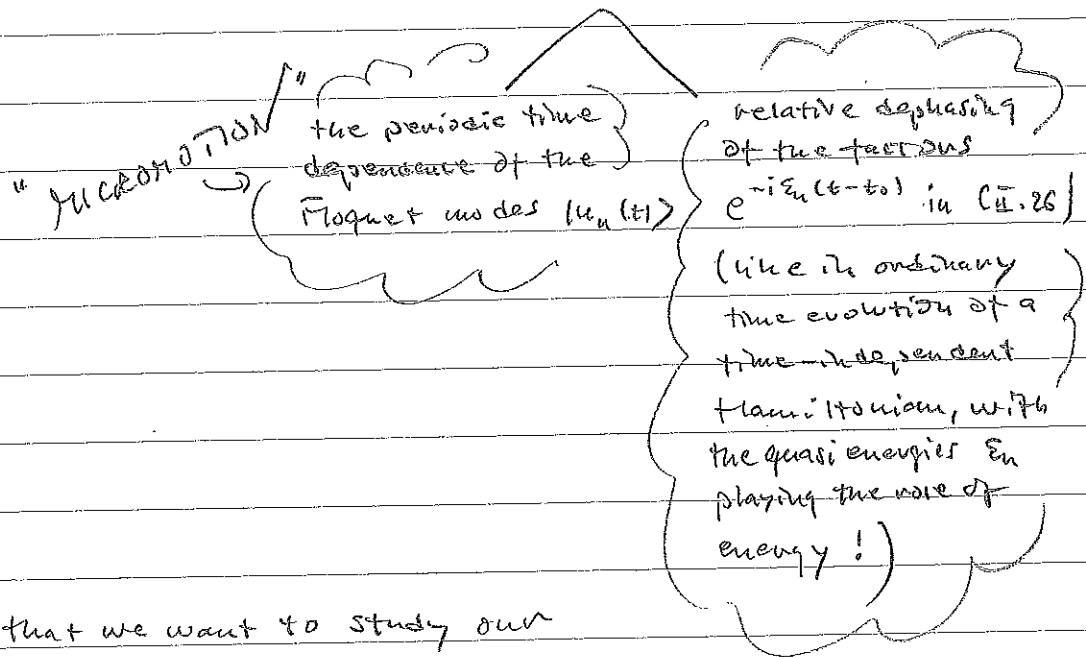 "MICROMOTION"
the periodic time
dependence of the
Floquet modes |u_n(t)>
relative dephasing
of the factors
e^{-iε_n(t-t_0)} in (II.26)
(like in ordinary
time evolution of a
time-independent
Hamiltonian, with
the quasi energies ε_n
playing the role of
energy !)
that we want to study our